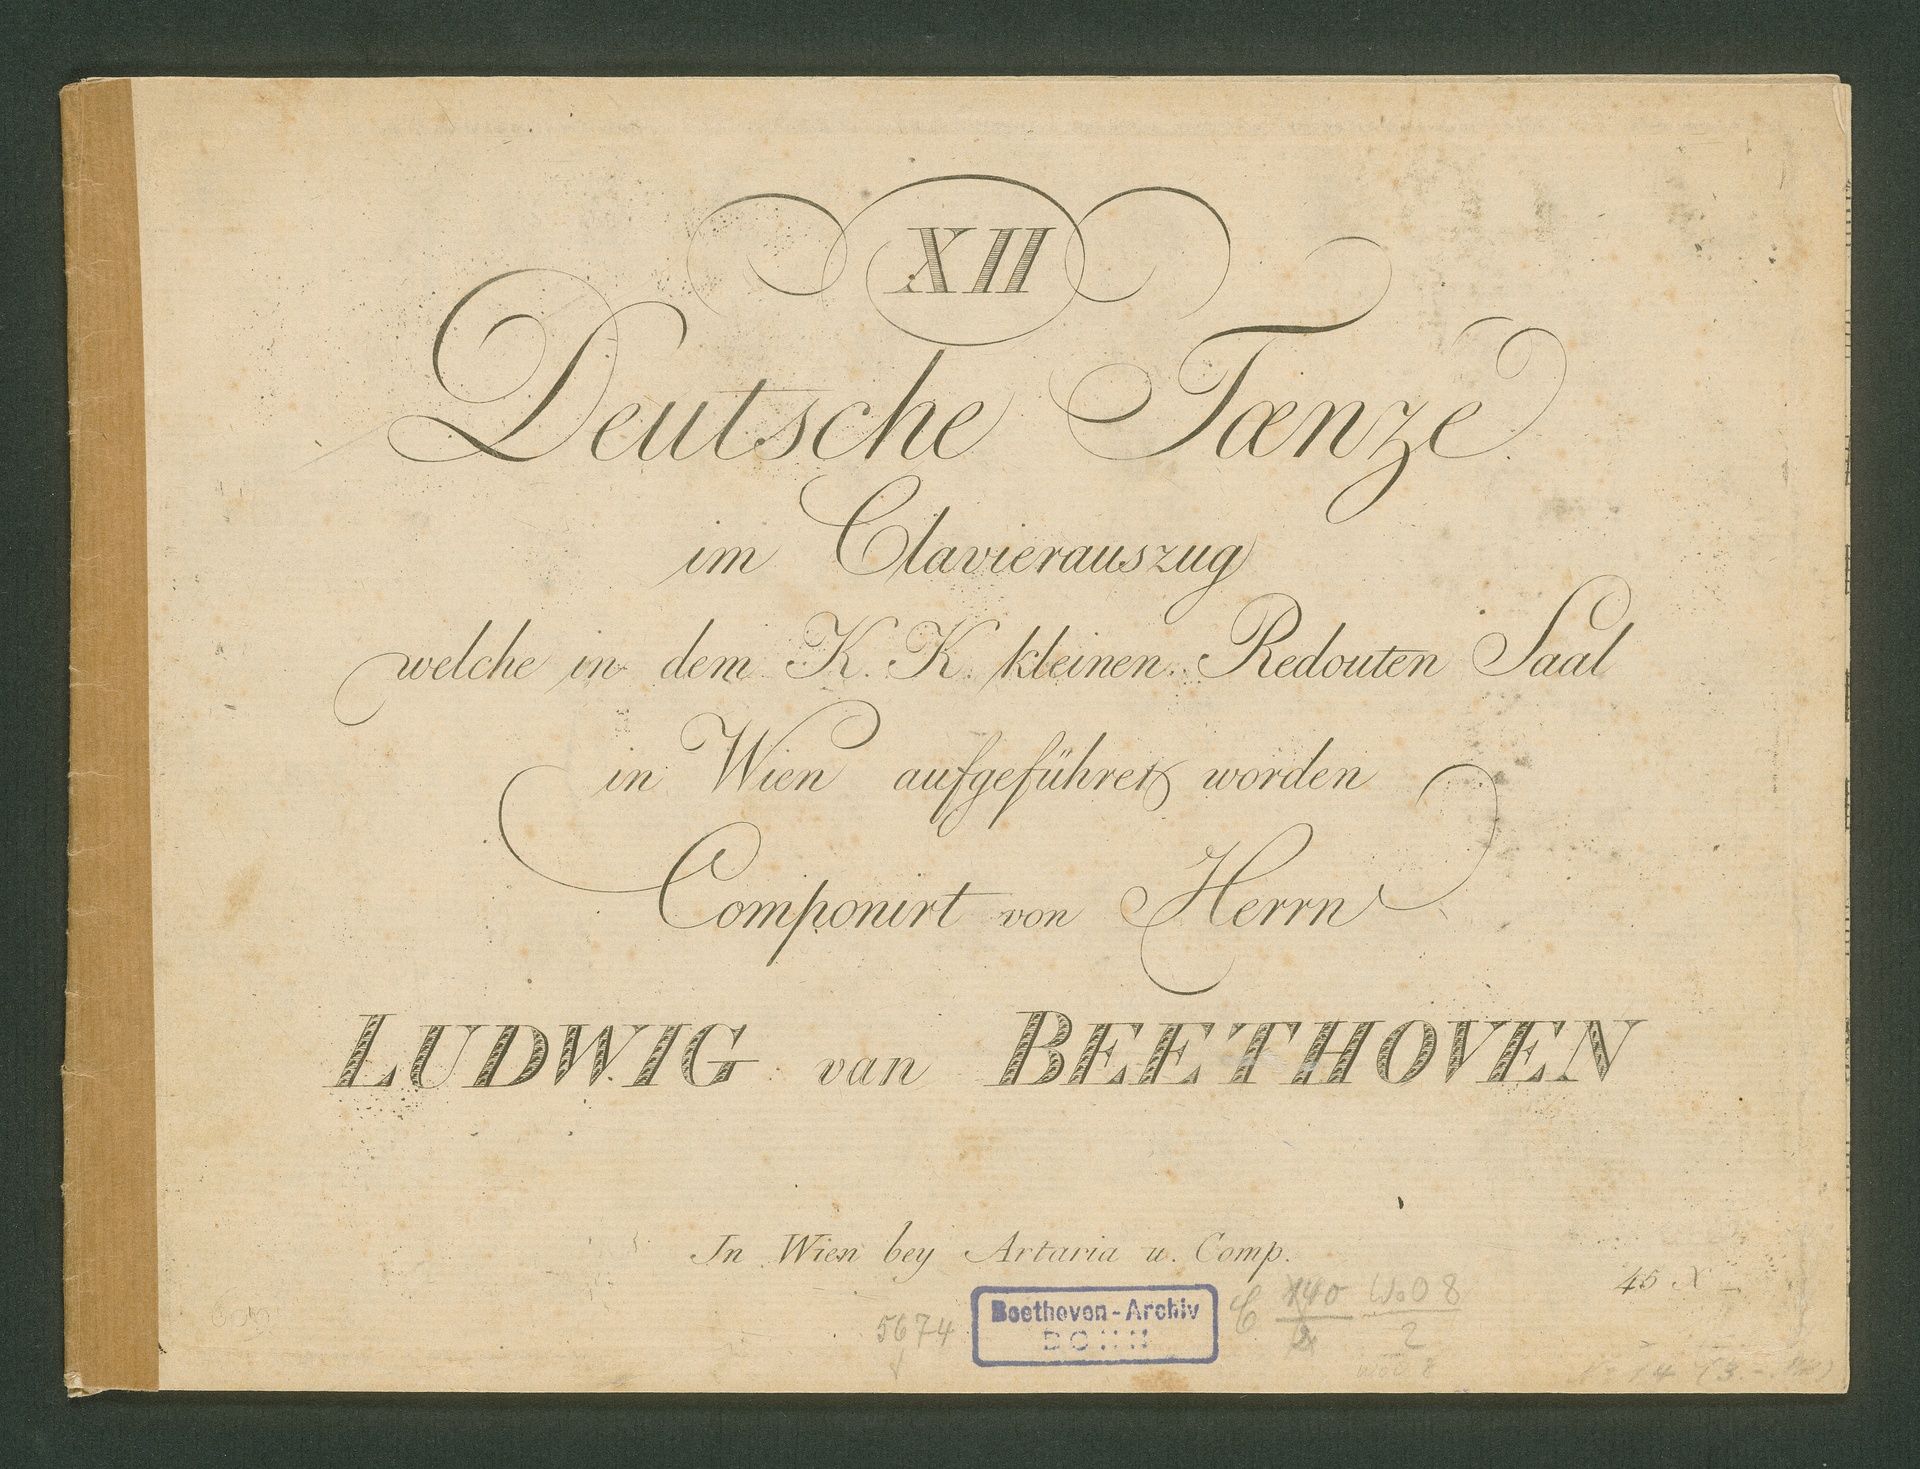 XII
Deutsche Tænze
im Clavierauszug
welche in dem K. K. kleinen Redouten Saal
in Wien aufgeführet worden
Componirt von Herrn
LUDWIG van BEETHOVEN
In Wien bey Artaria u. Comp.
45 X
5674
Beethoven-Archiv
BONN
C 140 WoO 8
2 2
WoO 8